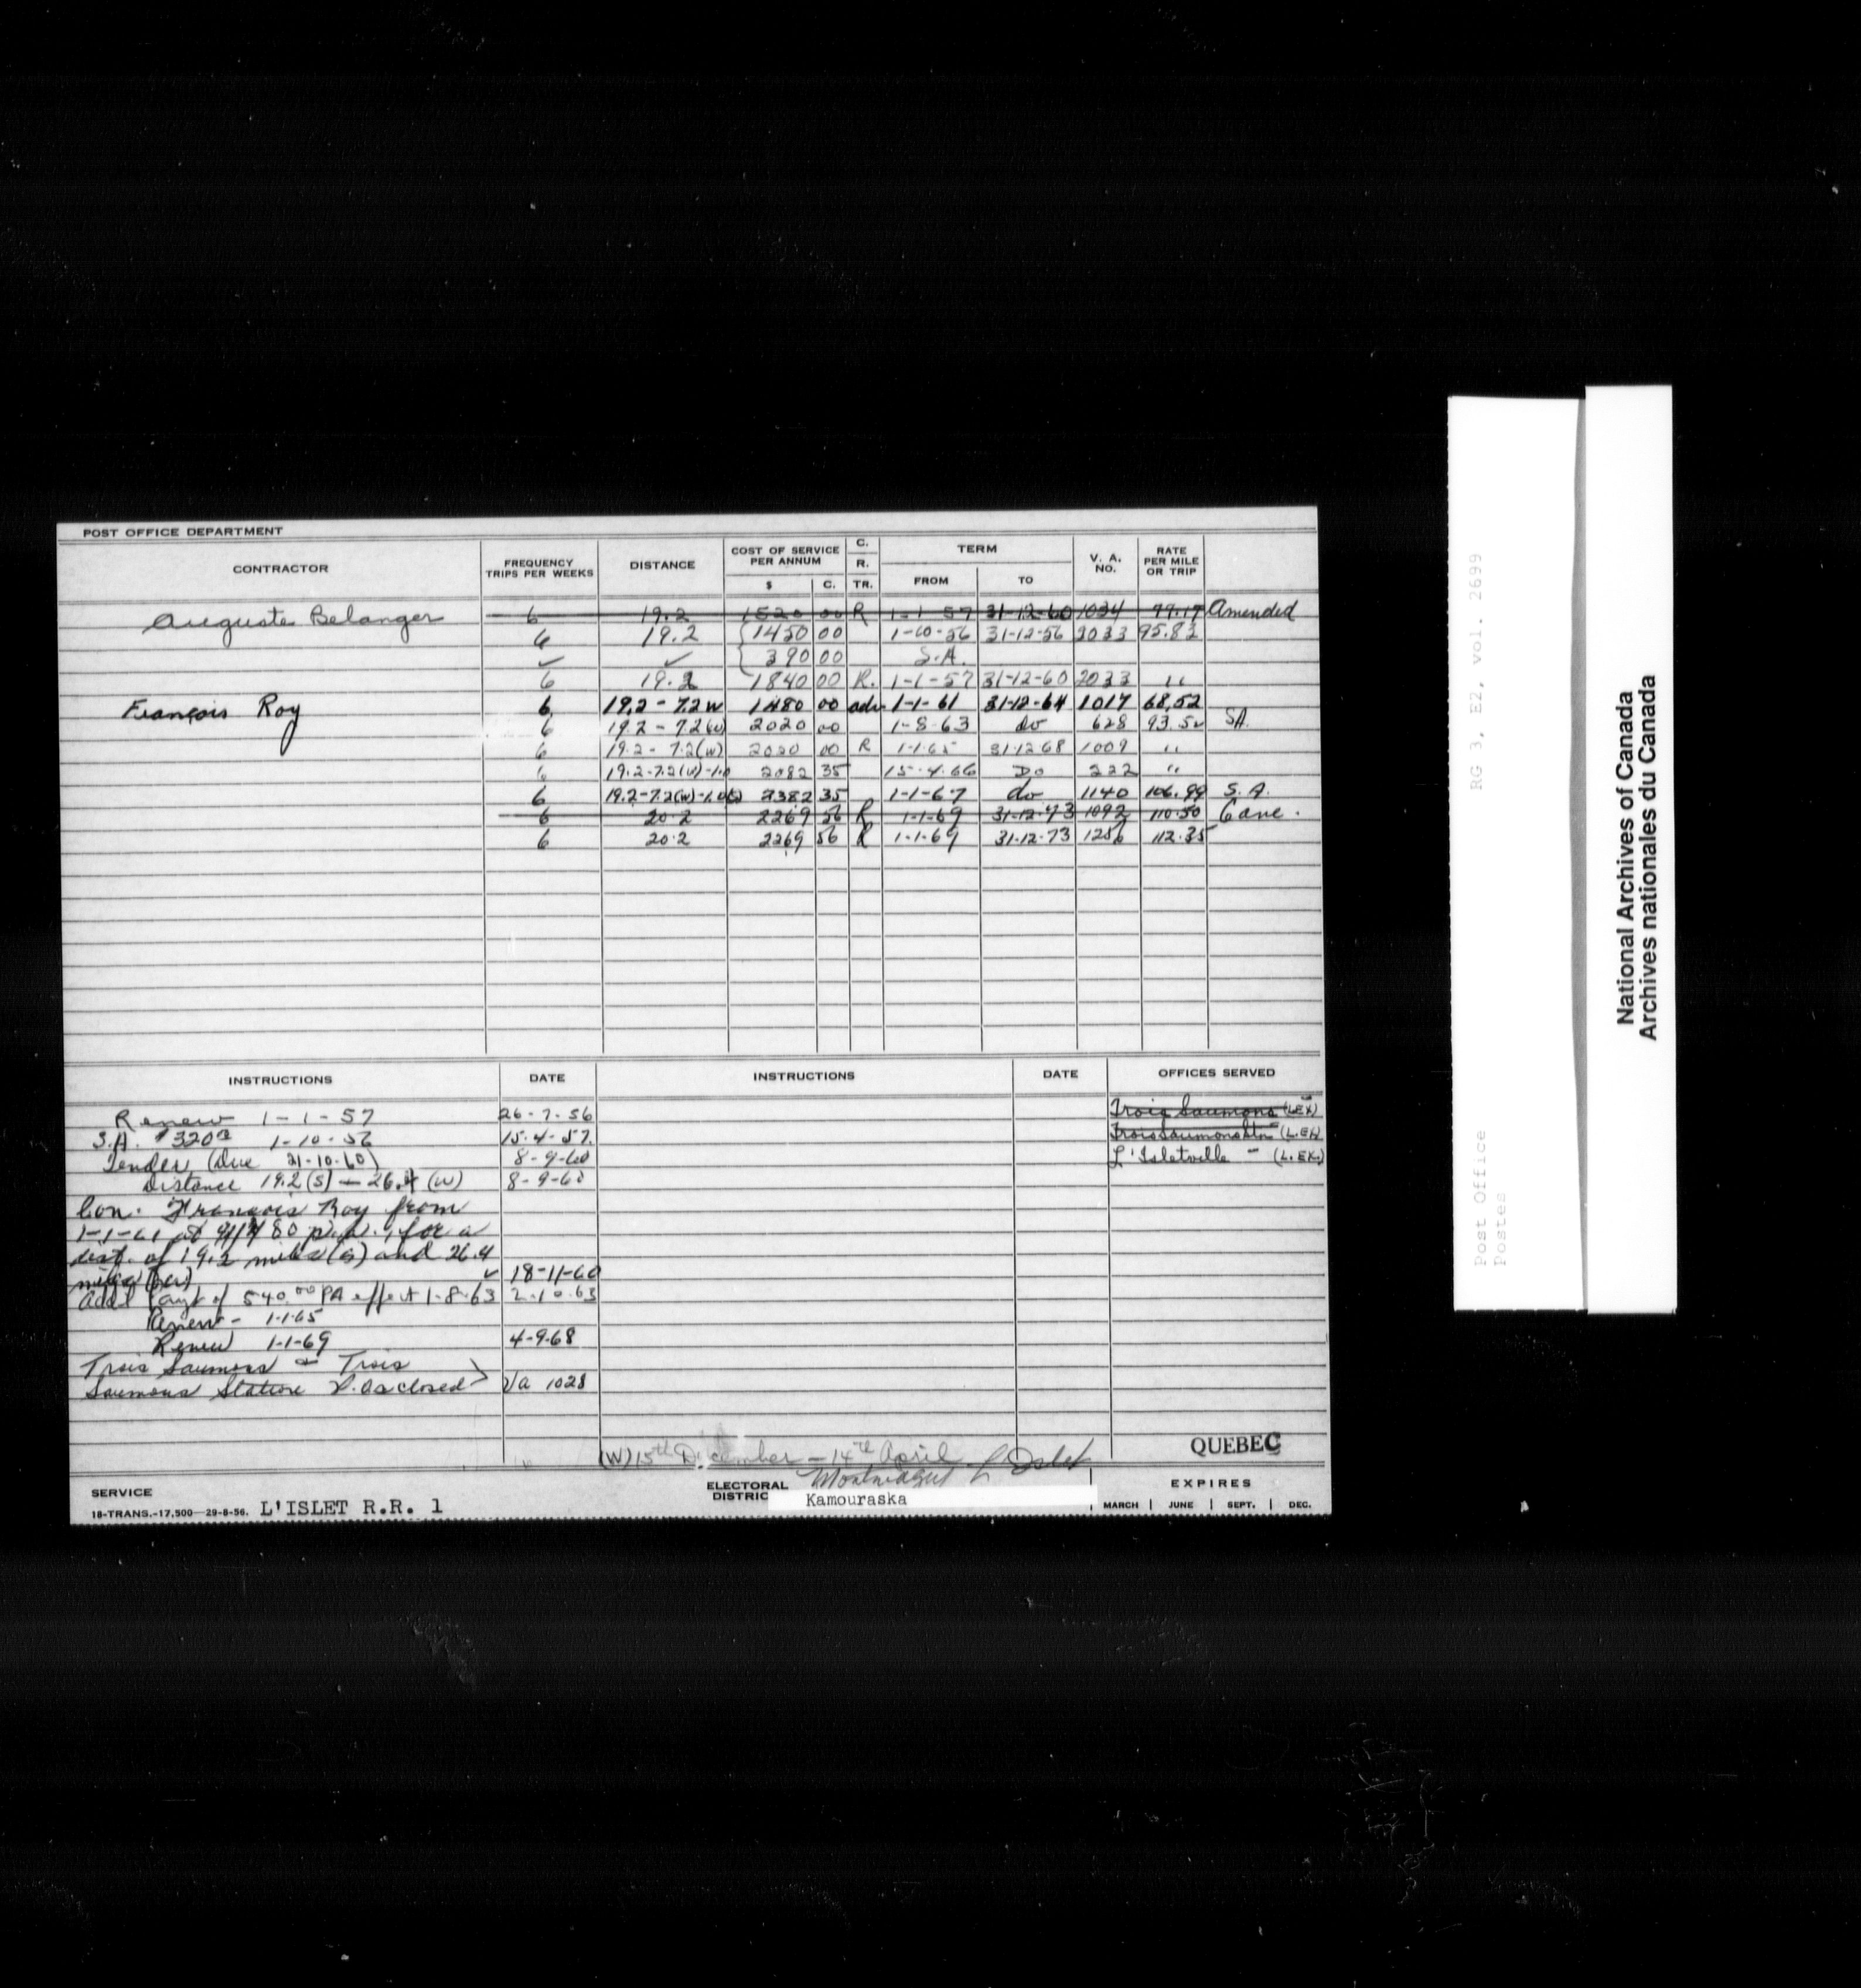 POST OFFICE DEPARTMENT
CONTRACTOR FREQUENCY TRIPS PER WEEKS DISTANCE COST OF SERVICE PER ANNUM $ C. C. R. TR. TERM FROM TO V. A. NO. RATE PER MILE OR TRIP
Auguste Belanger 6 19.2 1520 00 R 1-1-57 31-12-60 1034 79.17 Amended
6 19.2 1450 00 1-10-56 31-12-56 2033 95.83
✓ ✓ 390 00 S.A.
6 19.2 1840 00 R. 1-1-57 31-12-60 2033 "
François Roy 6 19.2 - 7.2 W 1480 00 adv. 1-1-61 31-12-64 1017 68.52
6 19.2 - 7.2(W) 2020 00 1-8-63 do 628 93.52 SA.
6 19.2 - 7.2(W) 2020 00 R 1-1-65 31-12-68 1009 "
6 19.2-7.2(W)-1.0 2082 35 15.4.66 Do 222 "
6 19.2-7.2(W)-1.0 2382 35 1-1-67 do 1140 106.99 S.A.
6 20.2 2269 56 R 1-1-69 31-12-73 1092 110.50 Canc.
6 20.2 2269 56 R 1-1-69 31-12-73 1256 112.35
INSTRUCTIONS DATE INSTRUCTIONS DATE OFFICES SERVED
Renew 1-1-57 26-7-56 Trois Saumons (L.EX)
S.A. $320 1-10-56 15-4-57. Trois Saumons Stn (L.EX)
Tender (Due 21-10-60) 8-9-60 L'Isletville - (L.EX.)
Distance 19.2 (S) - 26.4 (W) 8-9-60
Con. François Roy from
1-1-61 at $1480 p.a., for a
dist. of 19.2 miles (s) and 26.4
miles (w) ✓ 18-11-60
Add'l Payt of 540.00 PA effect 1-8-63 2-10-63
Renew - 1-1-65
Renew 1-1-69 4-9-68
Trois Saumons & Trois
Saumons Station P.Os closed VA 1028
(W) 15th December - 14th April
QUEBEC
Montmagny L'Islet
SERVICE ELECTORAL DISTRIC Kamouraska EXPIRES
18-TRANS.-17,500-29-8-56. L'ISLET R.R. 1 MARCH JUNE SEPT. DEC.
RG 3, E2, vol. 2699
Post Office
Postes
National Archives of Canada
Archives nationales du Canada